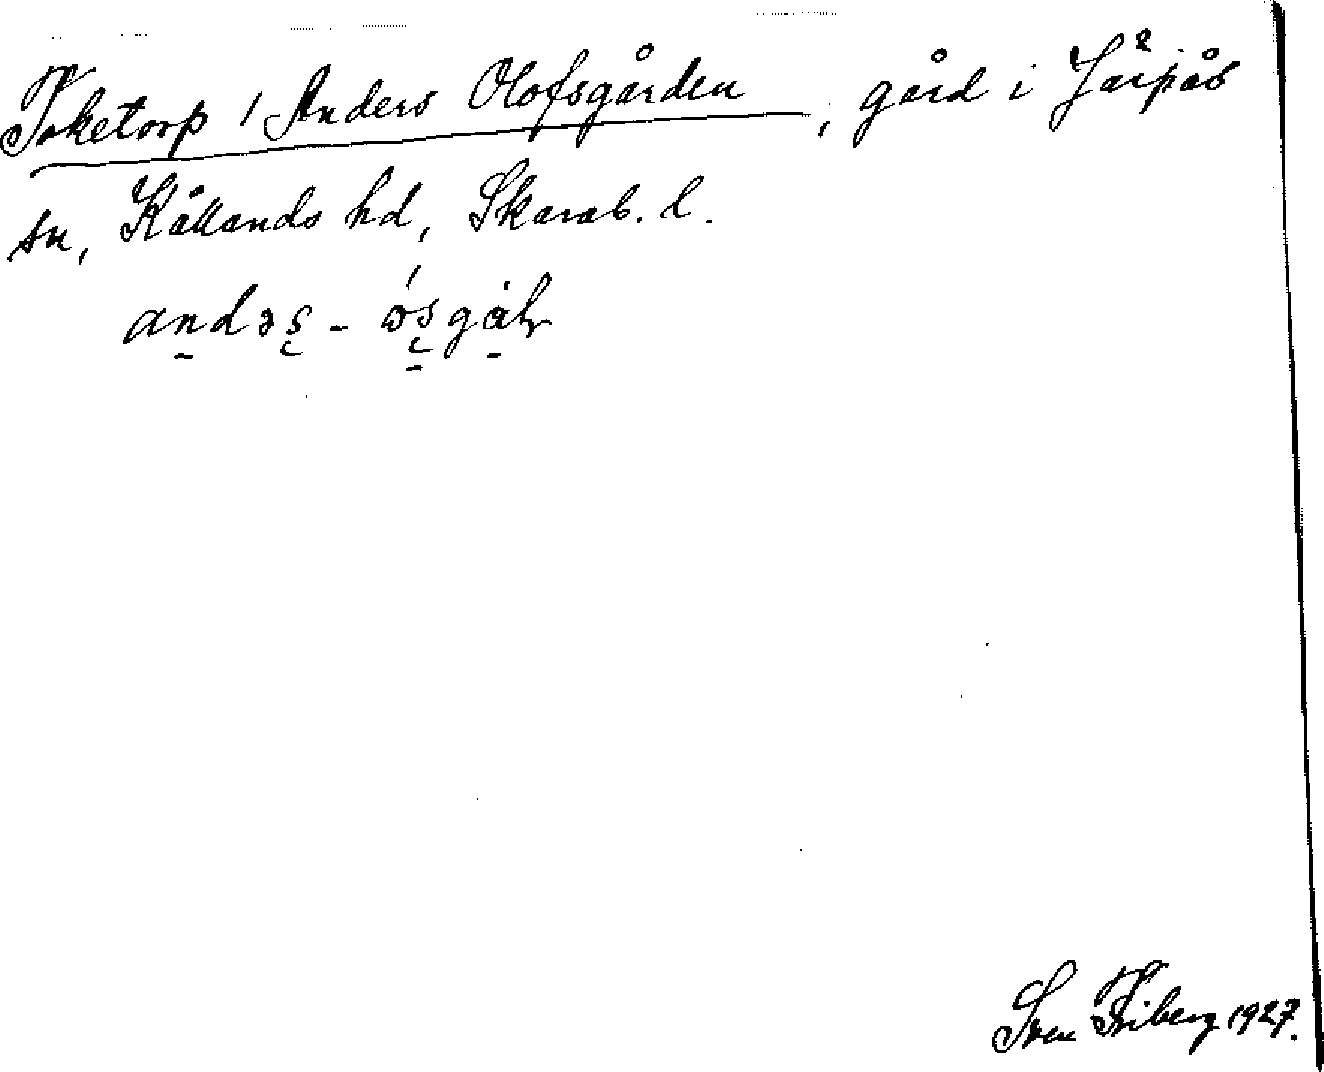 Toketorp / Anders Olofsgården, gård i Järpås
sn, Kållands hd, Skarab. l.
andəs - ósgáln
Sven Friberg 1927.